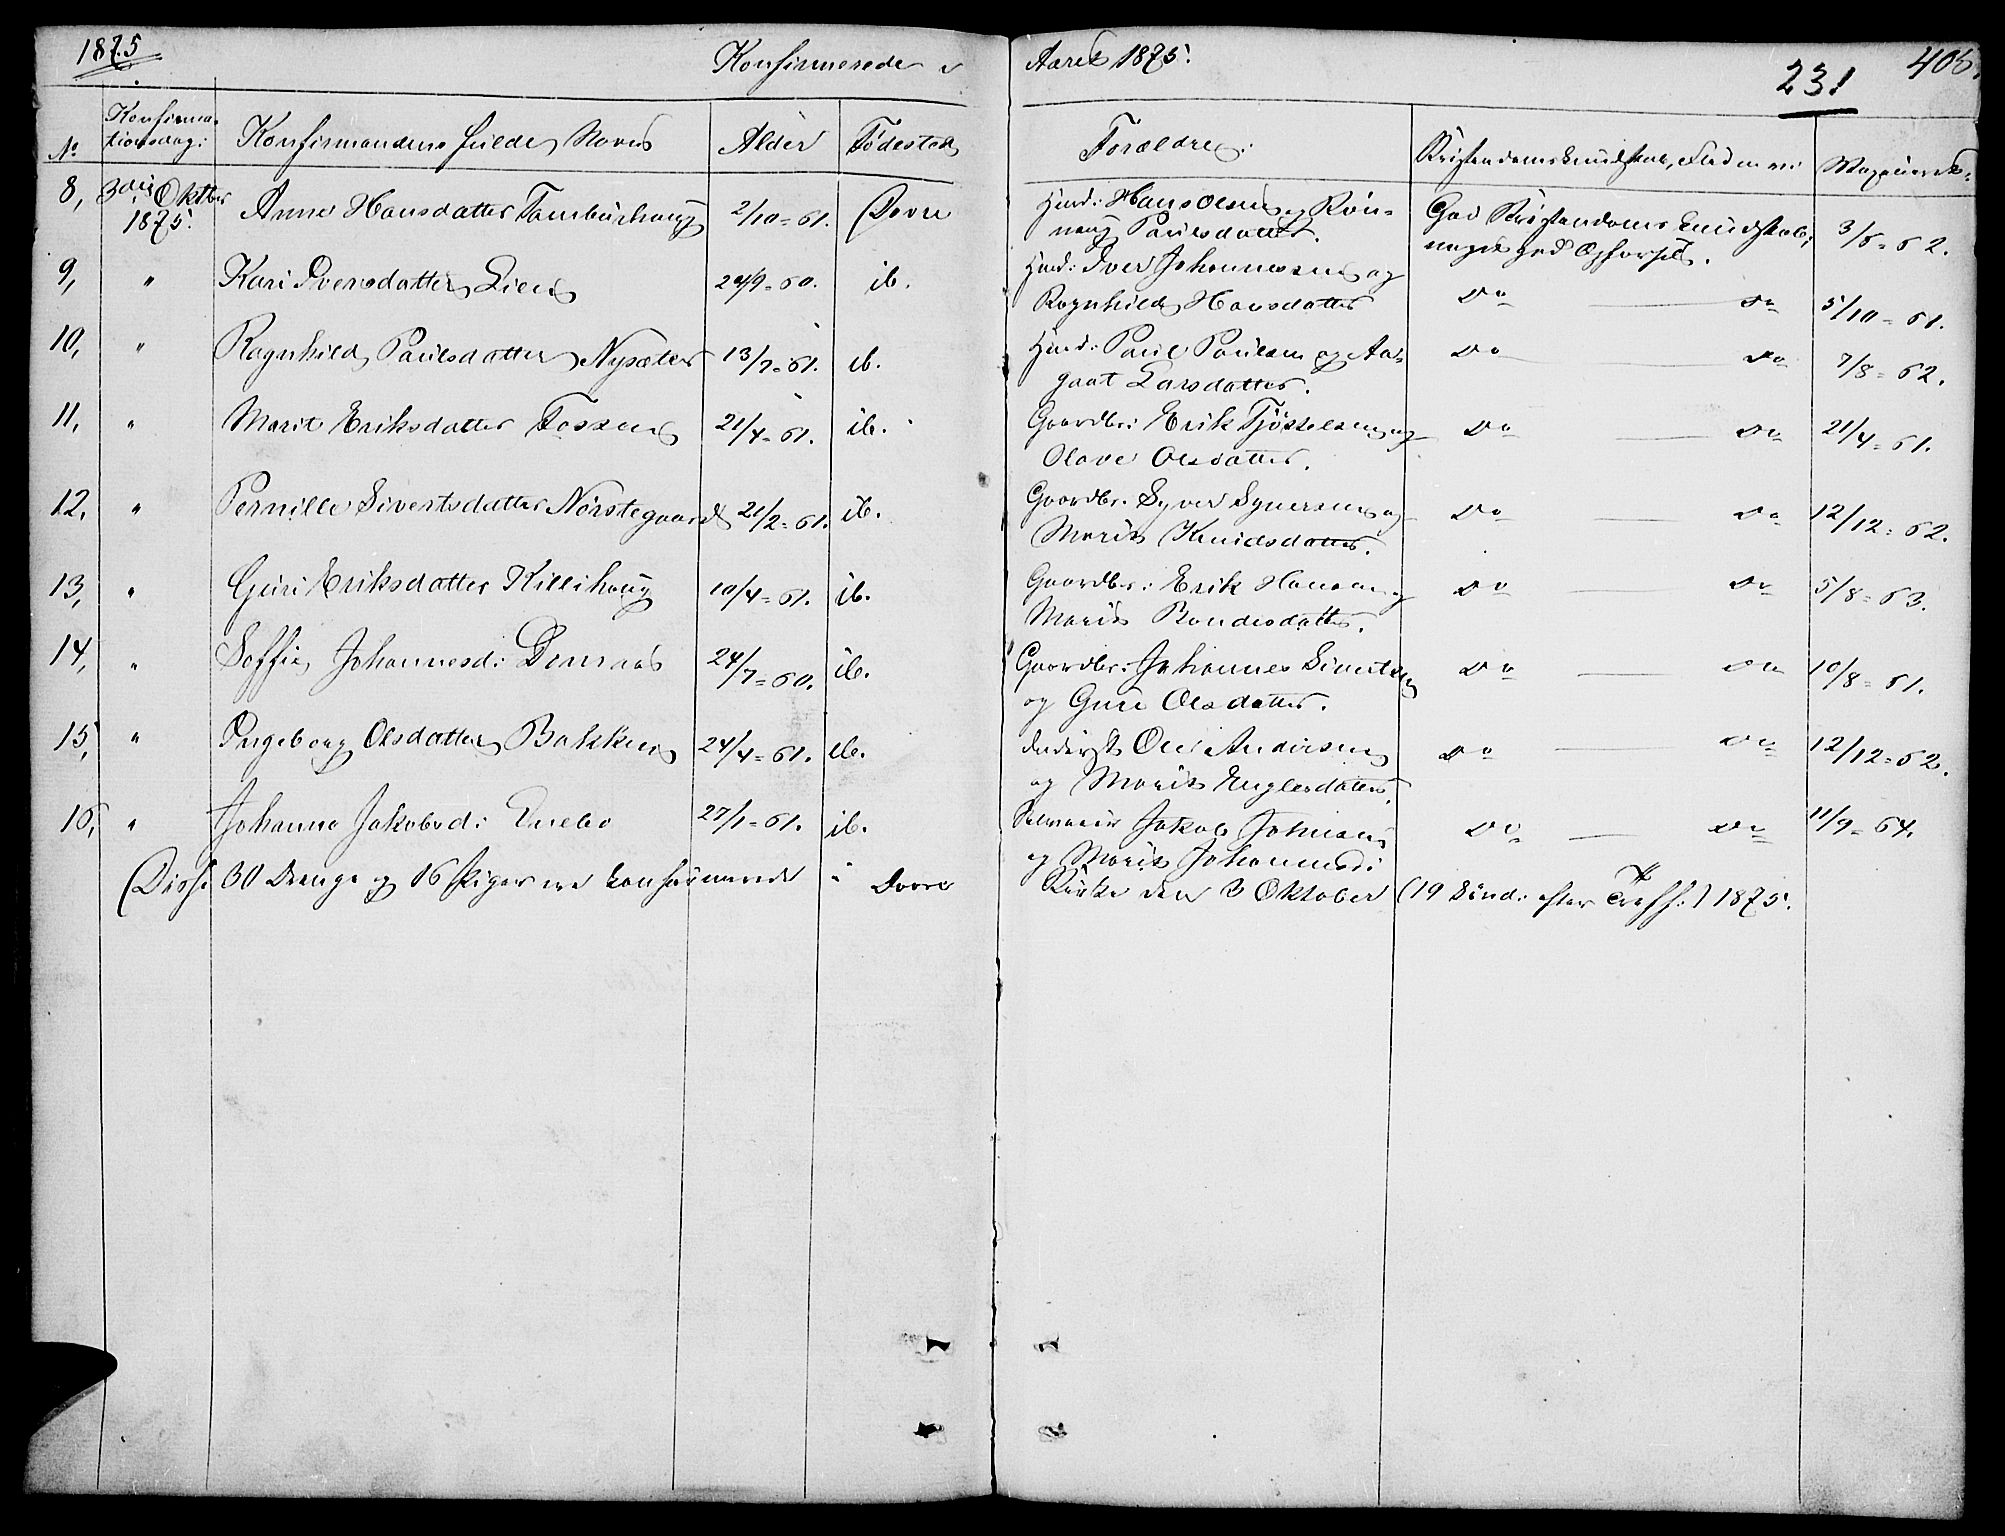 1875
Konfirmerede i
Aaret 1875.
231
405.
No
Konfirma-
tionsdag:
Konfirmandens fulde Navn
Alder
Fødested
Forældre.
Kristendomskundskab, Flid m.v:
Vaccinerede.
8, 3die Oktbr 1875. Anne Hansdatter 2/10=61. Dovre Huusd: Hans Olsen og Røn-
naug Paulsdatter. God Kristendoms Kundskab;
meget god Opførsel. 3/6=62.
9, " Kari Iversdatter Lien 24/9=60. ib. Huusd: Iver Johannesen og
Ragnhild Hansdatter Do — Do 5/10=61.
10, " Ragnhild Paulsdatter Nysæter 13/7=61. ib. Huusd: Paul Paulsen og Aa-
gaat Larsdatter. Do — Do 7/8=62.
11, " Marit Eriksdatter Fossen 21/4=61. ib. Gaardbr: Erik Tjøstelsen og
Olave Olsdatter. Do — Do 21/4=61.
12, " Pernille Sivertsdatter Nørstegaard 21/2=61. ib. Gaardbr. Syver Syversen og
Marit Knudsdatter. Do — Do 12/12=62.
13, " Guri Eriksdatter Killihoug 10/4=61. ib. Gaardbr: Erik Hansen og
Marit Rondesdatter. Do — Do 5/8=63.
14, " Soffie Johannesd: 24/7=60. ib. Gaardbr: Johannes Sivertsen
og Guri Olsdatter. Do — Do 10/8=61.
15, " Ingeborg Olsdatter Bakken 24/4=61. ib. Inderst Ole Andersen
og Marit Do — Do 12/12=62.
16, " Johanne Jakobsd: Enebo 27/1=61. ib. Jakob
og Marit Johannesd: Do — Do 11/9=64.
(Disse 30 Drenge og 16 Piger ere konfirmerede i Dovre
Kirke den 3 Oktober (19 Sønd: efter Tref:) 1875.